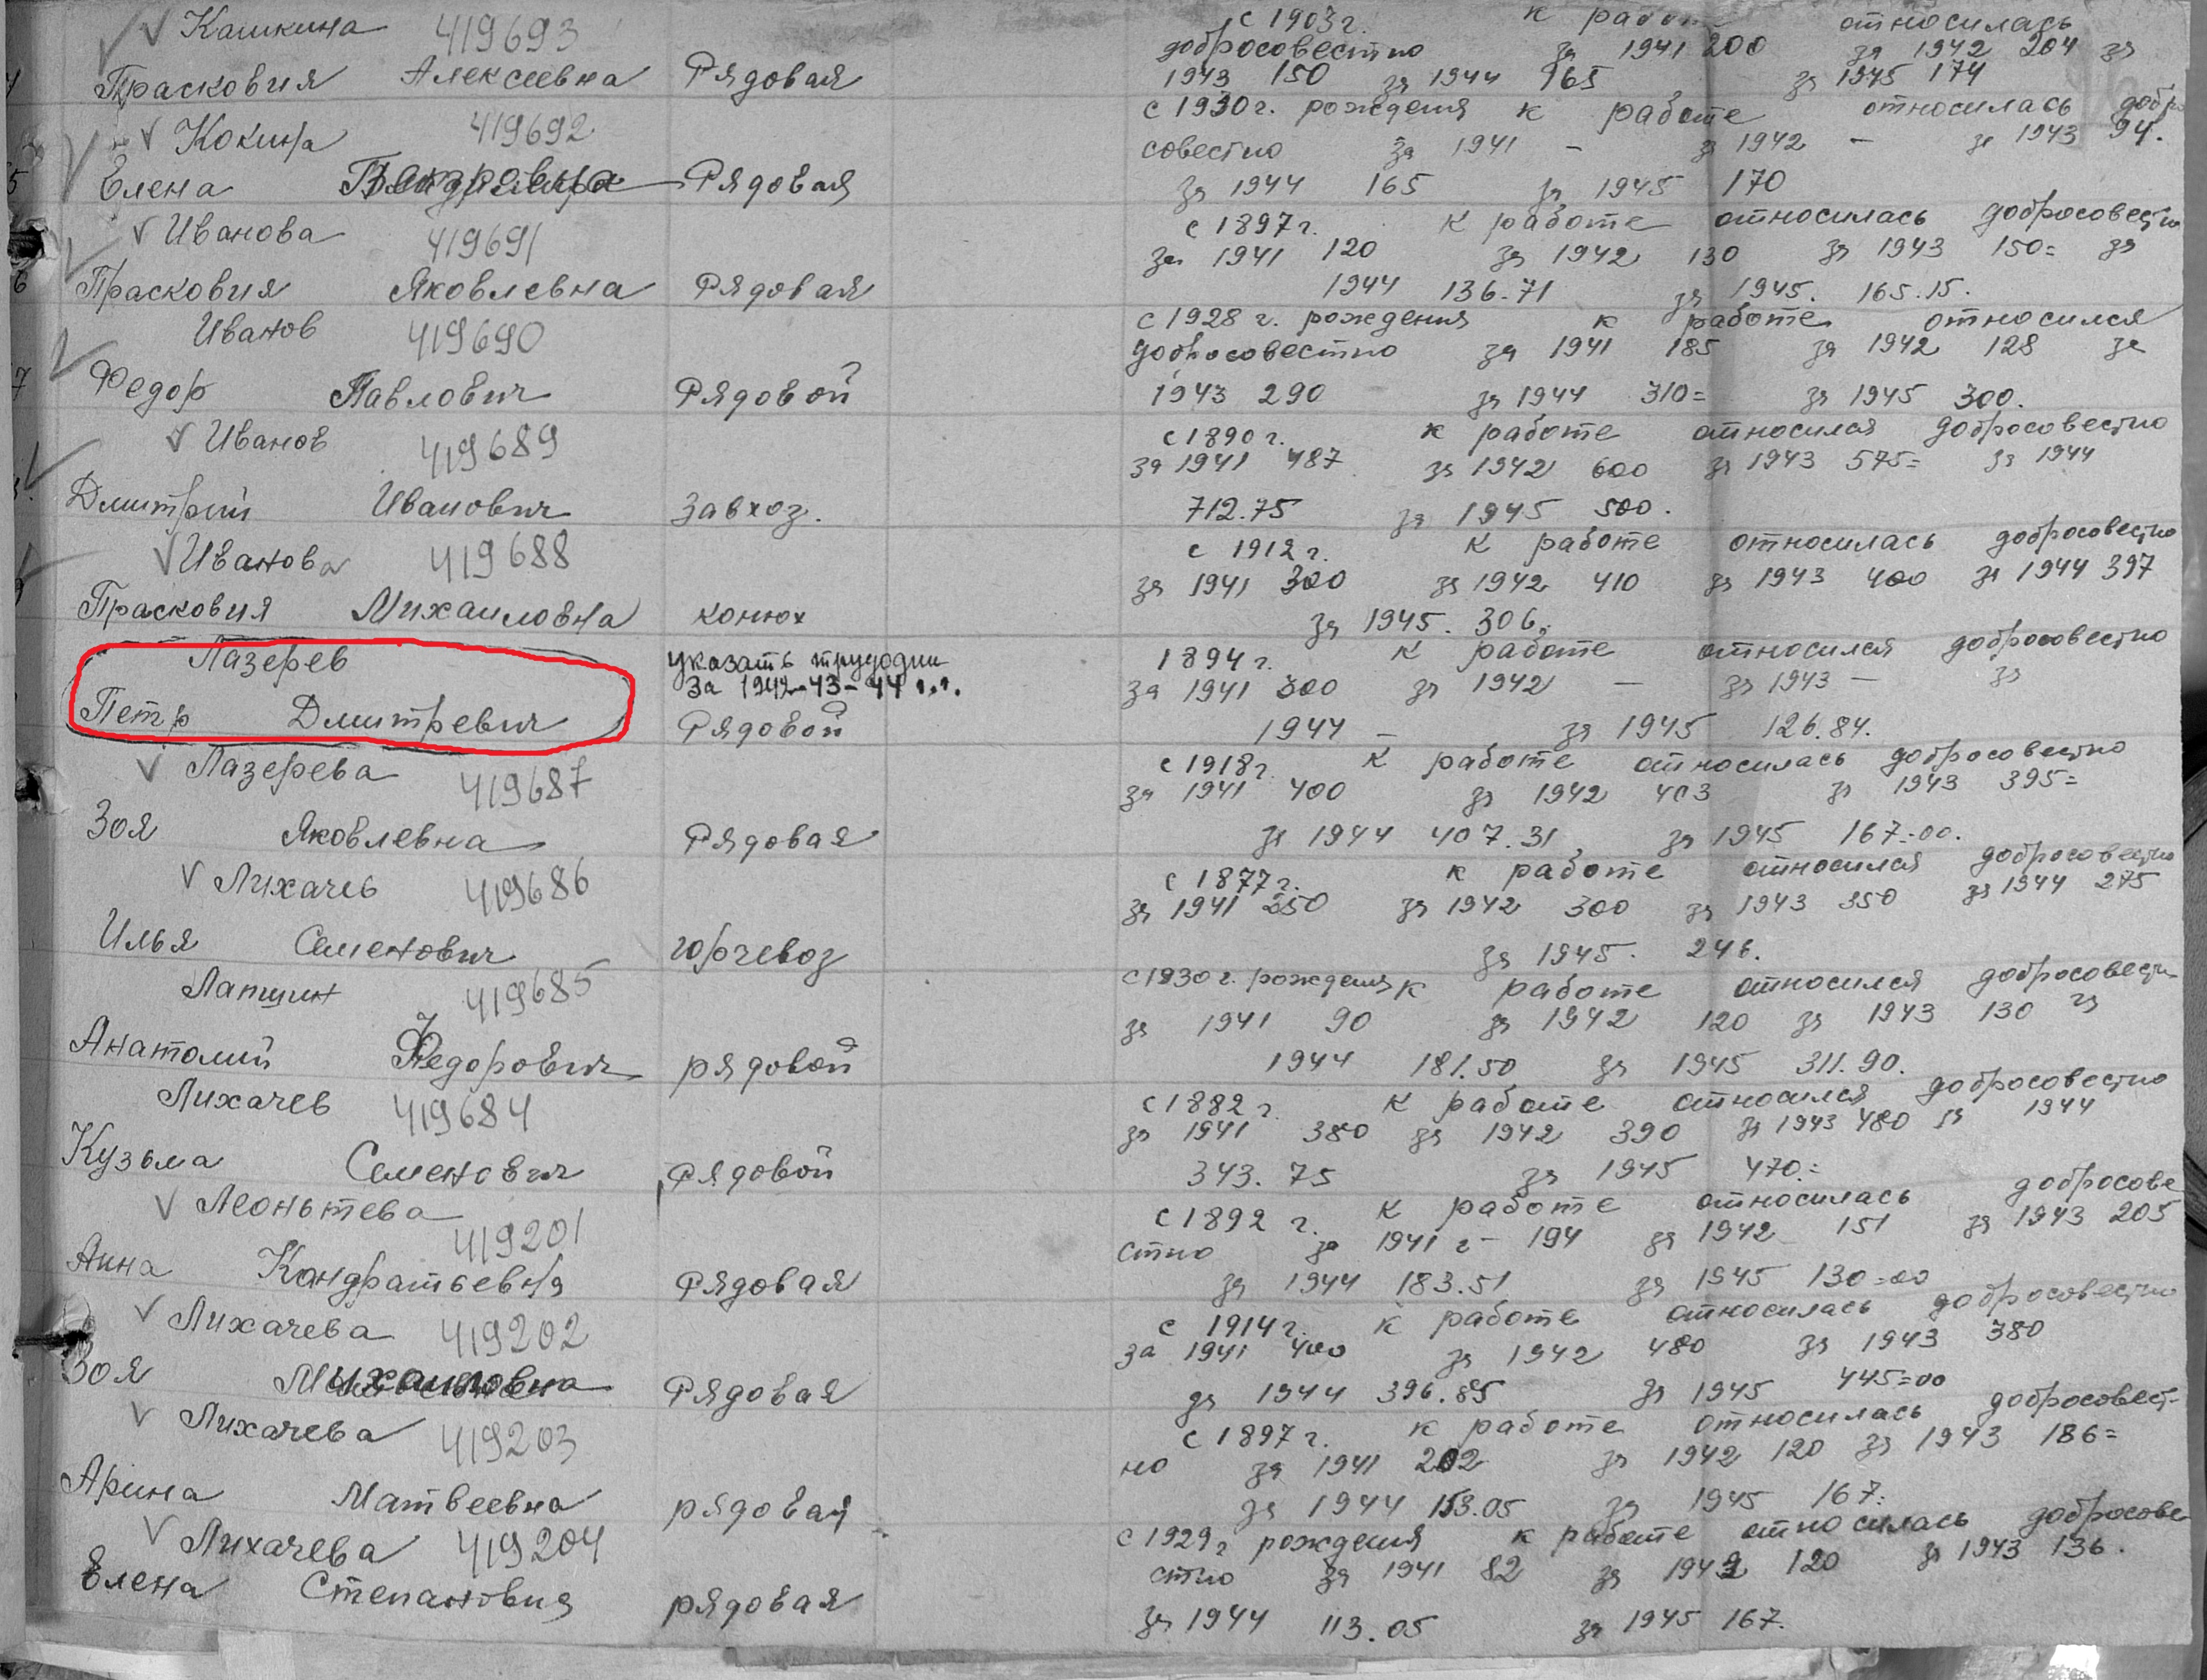 Кашкина 419693 с 1903г. к работе относилась
добросовестно за 1941 200 за 1942 204 за
Прасковия Алексеевна Рядовая 1943 150 за 1944 165 за 1945 174
Кокина 419692 с 1930г. рождения к работе относилась добро
совестно за 1941 - за 1942 - за 1943 94.
Елена Рядовая за 1944 165 за 1945 170
Иванова 419691 с 1897г. к работе относилась добросовестно
за 1941 120 за 1942 130 за 1943 150= за
Прасковия Яковлевна Рядовая 1944 136.71 за 1945. 165.15.
Иванов 419690 с 1928 г. рождения к работе относился
добросовестно за 1941 185 за 1942 128 за
7 Федор Павлович Рядовой 1943 290 за 1944 310= за 1945 300.
Иванов 419689 с 1890г. к работе относился добросовестно
за 1941 487 за 1942 600 за 1943 575= за 1944
Дмитрий Иванович Завхоз. 712.75 за 1945 500.
Иванова 419688 с 1912г. к работе относилась добросовестно
за 1941 300 за 1942 410 за 1943 400 за 1944 397
Прасковия Михаиловна конюх за 1945. 306.
Лазерев указать трудодни 1894г. к работе относился добросовестно
за 1942-43-44 г.г. за 1941 300 за 1942 - за 1943 - за
Петр Дмитревич Рядовой 1944 - за 1945 126.84.
Лазерева 419687 с 1918г. к работе относилась добросовестно
за 1941 400 за 1942 403 за 1943 395=
Зоя Яковлевна Рядовая за 1944 407.31 за 1945 167=00.
Лихачев 419686 с 1877г. к работе относился добросовестно
за 1941 250 за 1942 300 за 1943 350 за 1944 275
Илья Семенович горчевоз за 1945. 246.
Лапшин 419685 с 1930г. рождения к работе относился добросовестн
за 1941 90 за 1942 120 за 1943 130 за
Анатолий Федорович рядовой 1944 181.50 за 1945 311.90.
Лихачев 419684 с 1882г. к работе относился добросовестно
за 1941 380 за 1942 390 за 1943 480 за 1944
Кузьма Семенович Рядовой 343.75 за 1945 470.=
Леоньтева 419201 с 1892 г. к работе относилась добросове
стно за 1941 г- 194 за 1942 151 за 1943 205
Анна Кондратьевна Рядовая за 1944 183.51 за 1945 130=00
Лихачева 419202 с 1914г. к работе относилась добросовестно
за 1941 400 за 1942 480 за 1943 380
Зоя Михаиловна Рядовая за 1944 396.85 за 1945 445=00
Лихачева 419203 с 1897г. к работе относилась добросовест-
но за 1941 202 за 1942 120 за 1943 186=
Арина Матвеевна рядовая за 1944 153.05 за 1945 167=
Лихачева 419204 с 1929г рождения к работе относилась добросове
стно за 1941 82 за 1942 120 за 1943 136.
Елена Степановна рядовая за 1944 113.05 за 1945 167.